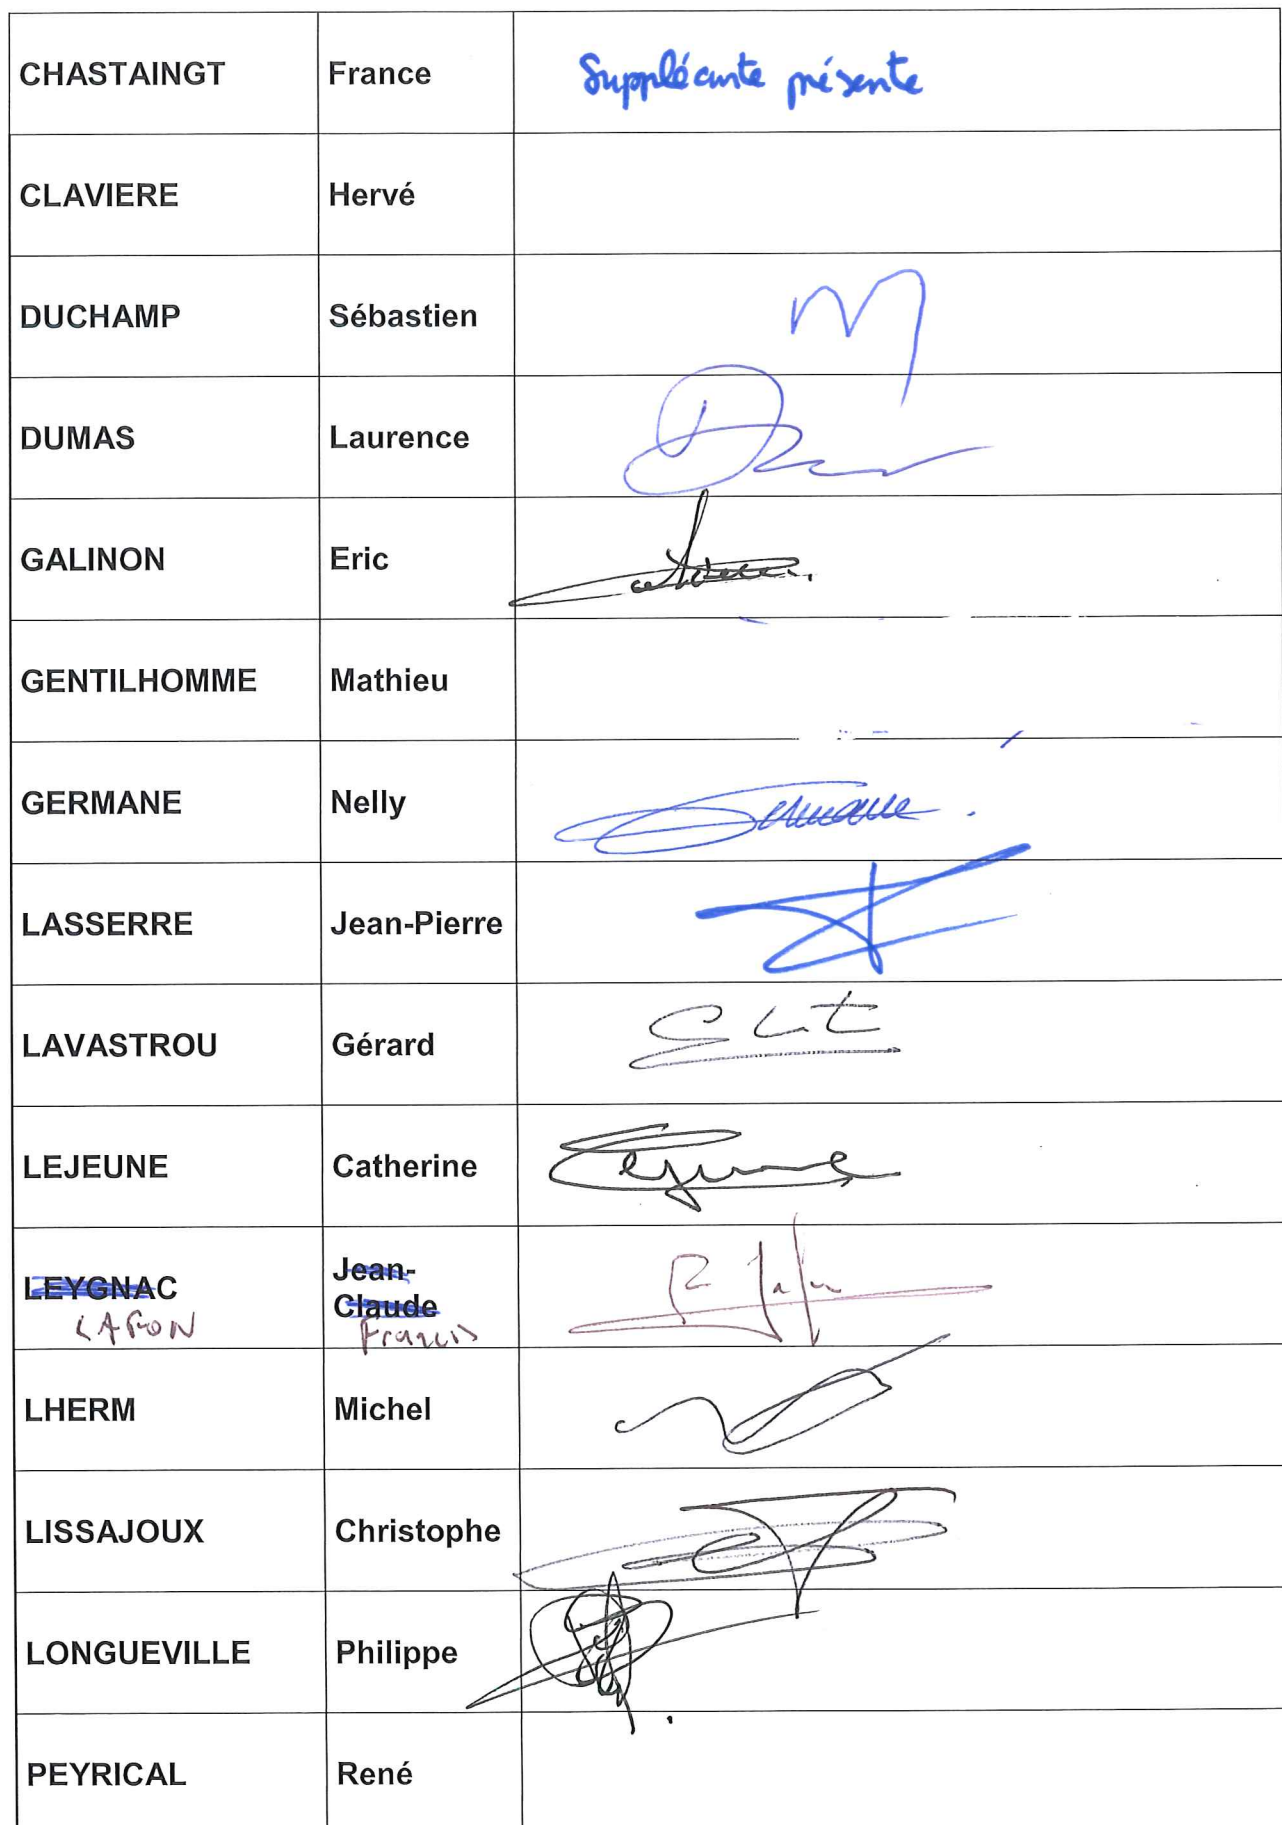 CHASTAINGT France Suppléante présente
CLAVIERE Hervé
DUCHAMP Sébastien
DUMAS Laurence
GALINON Eric
GENTILHOMME Mathieu
GERMANE Nelly Germane
LASSERRE Jean-Pierre
LAVASTROU Gérard
LEJEUNE Catherine Lejeune
LEYGNAC Jean-
Claude
LAFON Francis
LHERM Michel
LISSAJOUX Christophe
LONGUEVILLE Philippe
PEYRICAL René